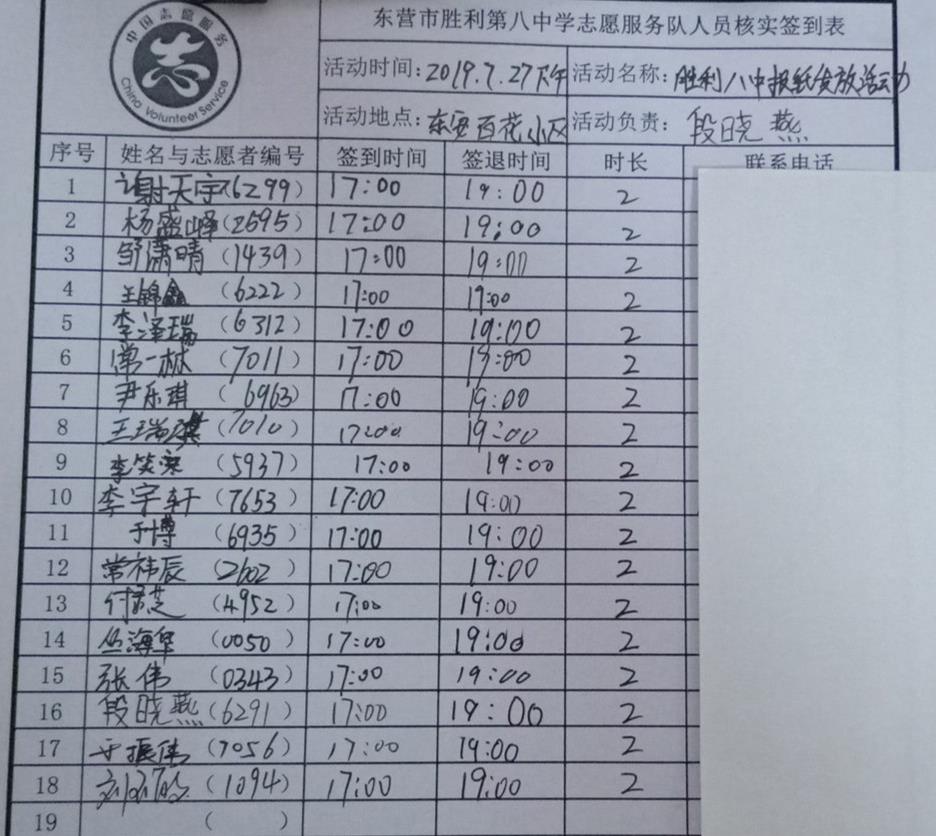 中国志愿服务
志
China Volunteer Service
东营市胜利第八中学志愿服务队人员核实签到表
活动时间:2019.7.27下午 活动名称:胜利八中报纸发放活动
活动地点:东营百花小区 活动负责:段晓燕
序号 姓名与志愿者编号 签到时间 签退时间 时长 联系电话
1 谢天宇(6299) 17:00 19:00 2
2 杨盛峰(2695) 17:00 19:00 2
3 邹潇晴(1439) 17:00 19:00 2
4 王锦鑫(6222) 17:00 19:00 2
5 李泽瑞(6312) 17:00 19:00 2
6 一林(7011) 17:00 19:00 2
7 尹乐琪(6963) 17:00 19:00 2
8 王瑞琪(7010) 17:00 19:00 2
9 李笑(5937) 17:00 19:00 2
10 李宇轩(7653) 17:00 19:00 2
11 于博(6935) 17:00 19:00 2
12 常祎辰(2602) 17:00 19:00 2
13 付芝(4952) 17:00 19:00 2
14 丛海华(0050) 17:00 19:00 2
15 张伟(0343) 17:00 19:00 2
16 段晓燕(6291) 17:00 19:00 2
17 于振伟(7056) 17:00 19:00 2
18 刘(1094) 17:00 19:00 2
19 ( )